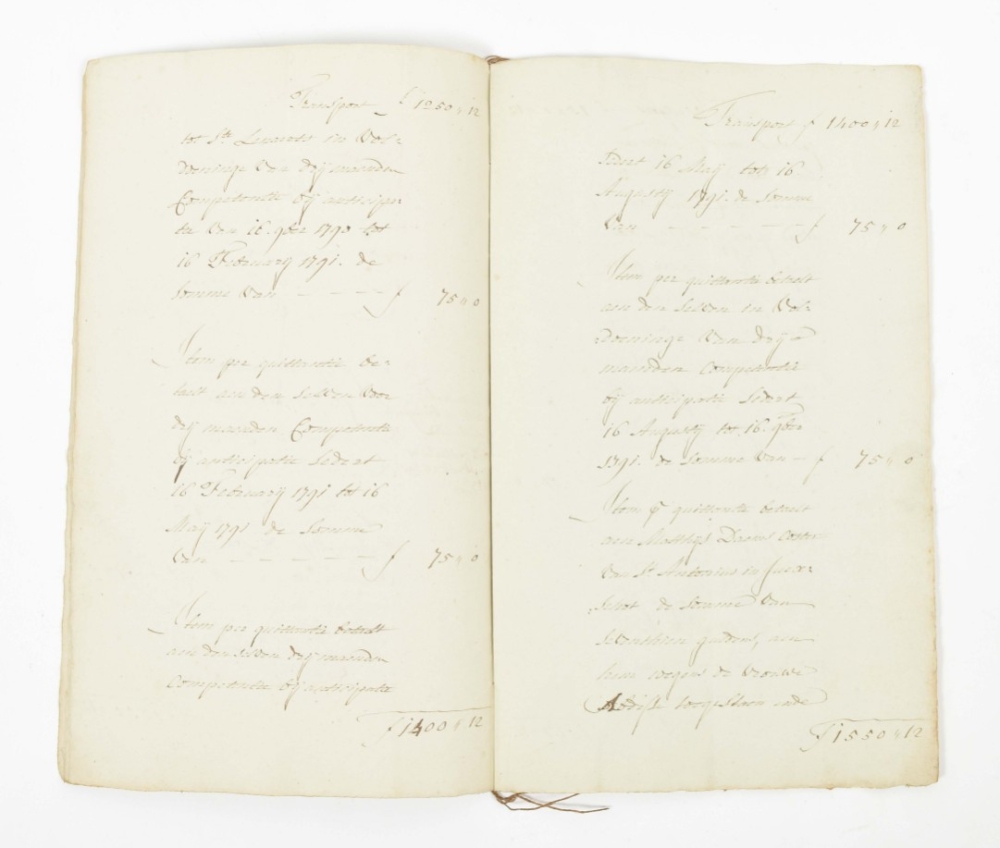 Transport f 1250 " 12
tot St. Lenaerts in vol-
doeninge van drij maenden
Competentie bij anticipa-
tie van 16. 9ber 1790 tot
16 February 1791. de
Somme van - - - - f 75 " 0
Item per quittantie be-
taelt aen den selven voor
drij maenden Competentie
bij anticipatie Sedert
16 February 1791 tot 16
Maij 1791 de Somme
van - - - - - f 75 " 0
Item per quittantie betaelt
aen den selven drij maenden
Competentie bij anticipatie
f 1400 " 12
Transport f 1400 " 12
Sedert 16 Maij tot 16
Augustij 1791. de Somme
van - - - - - f 75 " 0
Item per quittantie betaelt
aen den selven in vol-
doeninge van drij
maenden Competentie
bij anticipatie Sedert
16 Augustij tot 16. 9ber
1791. de Somme van - f 75 " 0
Item pr quittantie betaelt
aen Matthijs Daems Coster
van St. Antonius in
-schot de Somme van
seventhien guldens, aen
hem wegens de vrouwe
toegestaen
f 1550 " 12